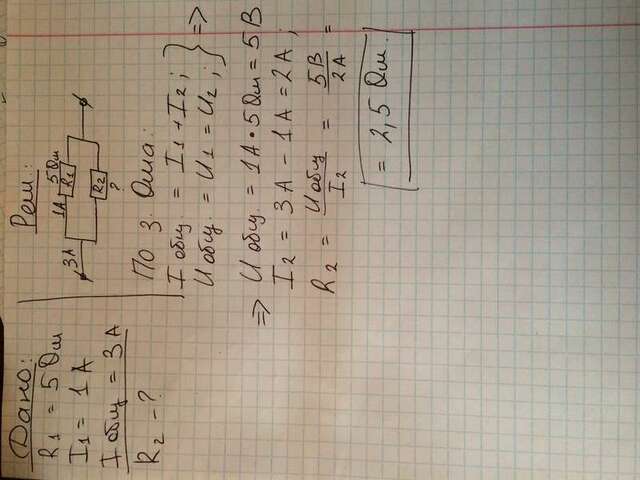 Дано:
R1 = 5 Ом
I1 = 1 А
I общ = 3 А
R2 - ?
Реш.:
3А 1А 5 Ом
R1
R2
?
По З. Ома:
I общ. = I1 + I2; } =>
U общ. = U1 = U2; }
=> U общ. = 1А • 5 Ом = 5 В
I2 = 3А - 1А = 2А;
R2 = U общ / I2 = 5В / 2А =
= 2,5 Ом.